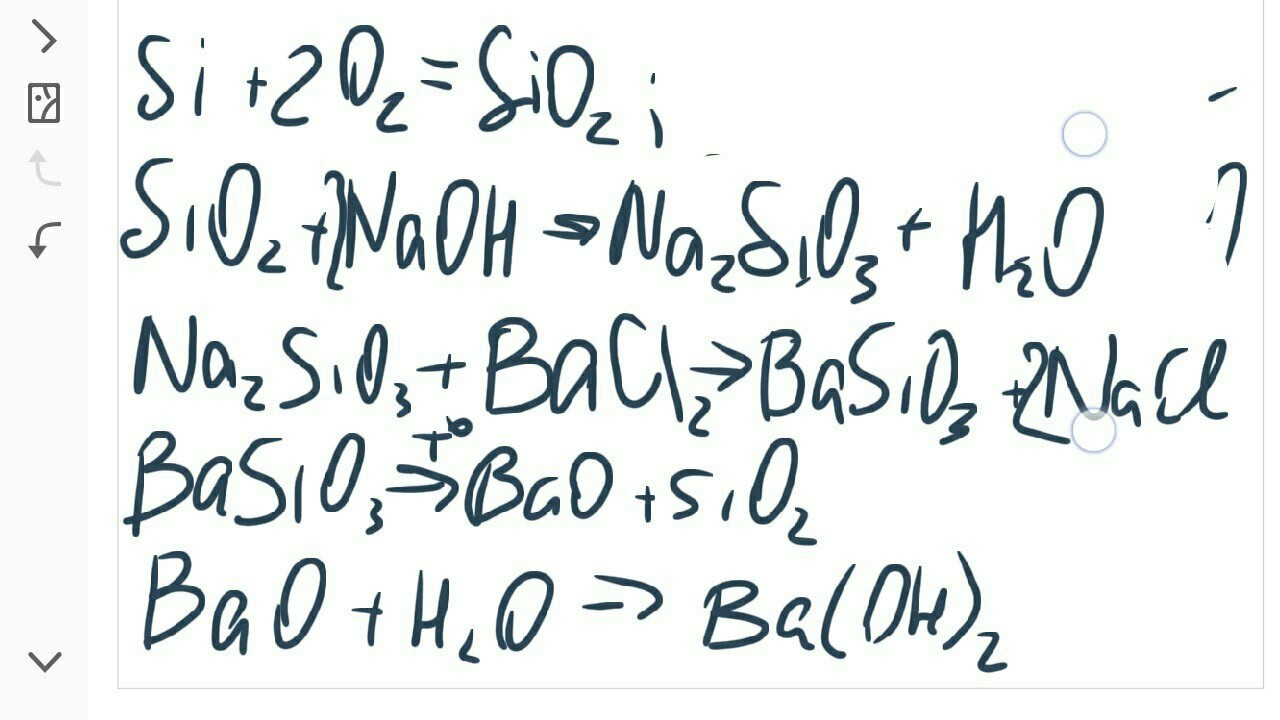 Si + 2O₂ = SiO₂ ;
SiO₂ + 2NaOH → Na₂SiO₃ + H₂O
Na₂SiO₃ + BaCl₂ → BaSiO₃ + 2NaCl
BaSiO₃ t° ⇒ BaO + SiO₂
BaO + H₂O ⇒ Ba(OH)₂